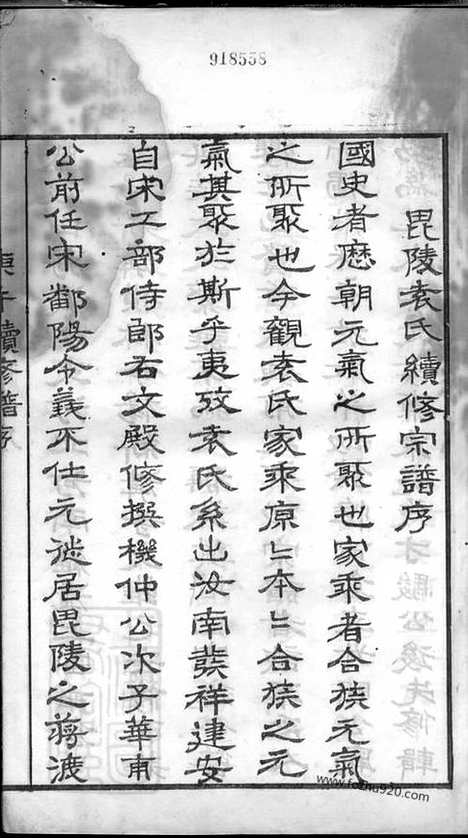 918558
毘陵袁氏續修宗譜序
國史者歷朝元氣之所聚也家乘者合族元氣
之所聚也今觀袁氏家乘原原本本合族之元
氣其聚於斯乎夷攷袁氏系出汝南發祥建安
自宋工部侍郎右文殿修撰機仲公次子華甫
公前任宋鄱陽令義不仕元徙居毘陵之蔣瀆
庚午續修譜序
www.fozhu920.com